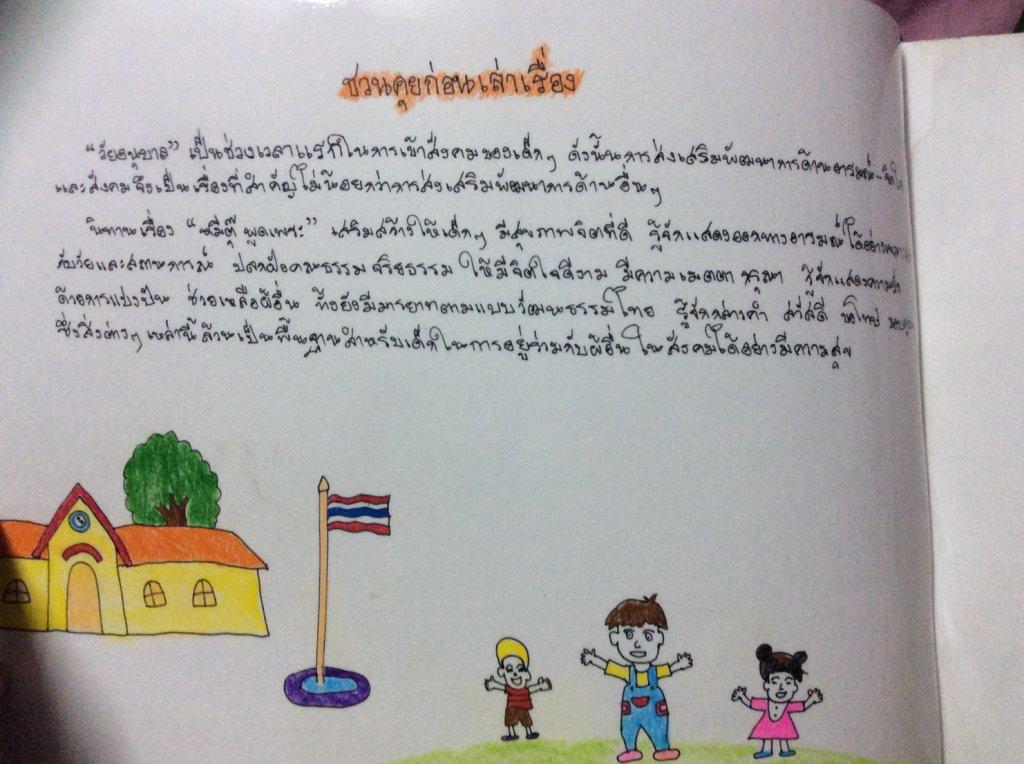 ชวนคุยก่อนเล่าเรื่อง
"วัยอนุบาล" เป็นช่วงเวลาแรกในการเข้าสังคมของเด็กๆ ดังนั้นการส่งเสริมพัฒนาการด้านอารมณ์-จิตใจ
และสังคมจึงเป็นเรื่องที่สำคัญไม่น้อยกว่าการส่งเสริมพัฒนาการด้านอื่นๆ
นิทานเรื่อง "หมีตุ๊ พูดเพราะ" เสริมสร้างให้เด็กๆ มีสุขภาพจิตที่ดี รู้จักแสดงออกทางอารมณ์ได้อย่าง
กับวัยและสถานการณ์ ปลูกฝังคุณธรรม จริยธรรม ให้มีจิตใจดีงาม มีความเมตตา กรุณา รู้จักแสดงความรัก
ด้วยการแบ่งปัน ช่วยเหลือผู้อื่น ทั้งยังมีมารยาทตามแบบวัฒนธรรมไทย รู้จักกล่าวคำ สวัสดี ขอโทษ ขอบคุณ
ซึ่งสิ่งต่างๆ เหล่านี้ล้วนเป็นพื้นฐานสำหรับเด็กในการอยู่ร่วมกับผู้อื่น ในสังคมได้อย่างมีความสุข